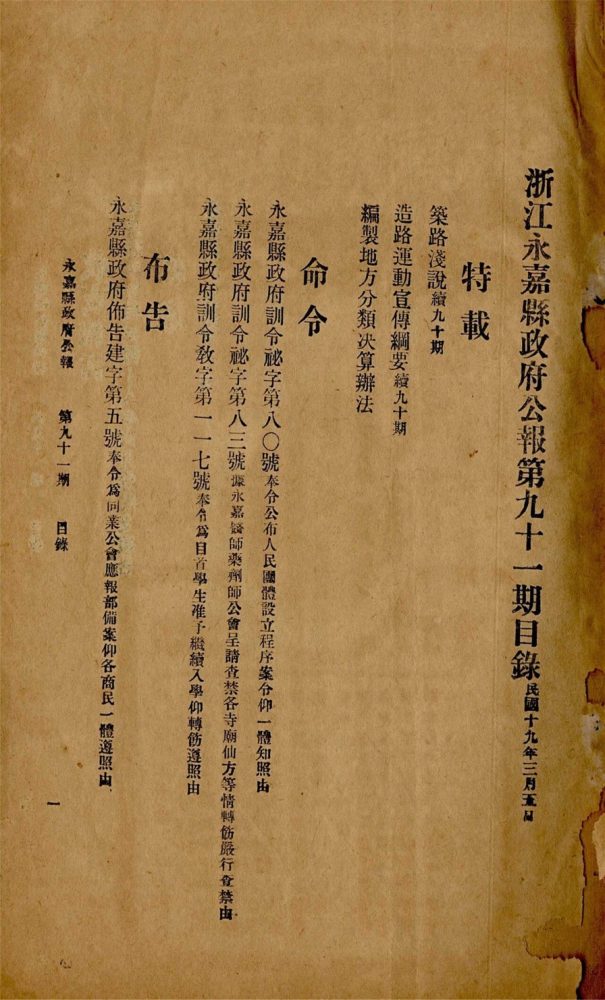 浙江永嘉縣政府公報第九十一期目錄民國十九年三月五日
特載
築路淺說續九十期
造路運動宣傳綱要續九十期
編製地方分類決算辦法
命令
永嘉縣政府訓令祕字第八〇號奉令公布人民團體設立程序案令仰一體知照由
永嘉縣政府訓令祕字第八三號據永嘉醫師藥劑師公會呈請查禁各寺廟仙方等情轉飭嚴行查禁由
永嘉縣政府訓令教字第一一七號奉令爲自首學生准予繼續入學仰轉飭遵照由
布告
永嘉縣政府佈告建字第五號奉令爲同業公會應報部備案仰各商民一體遵照由
永嘉縣政府公報 第九十一期 目錄
一